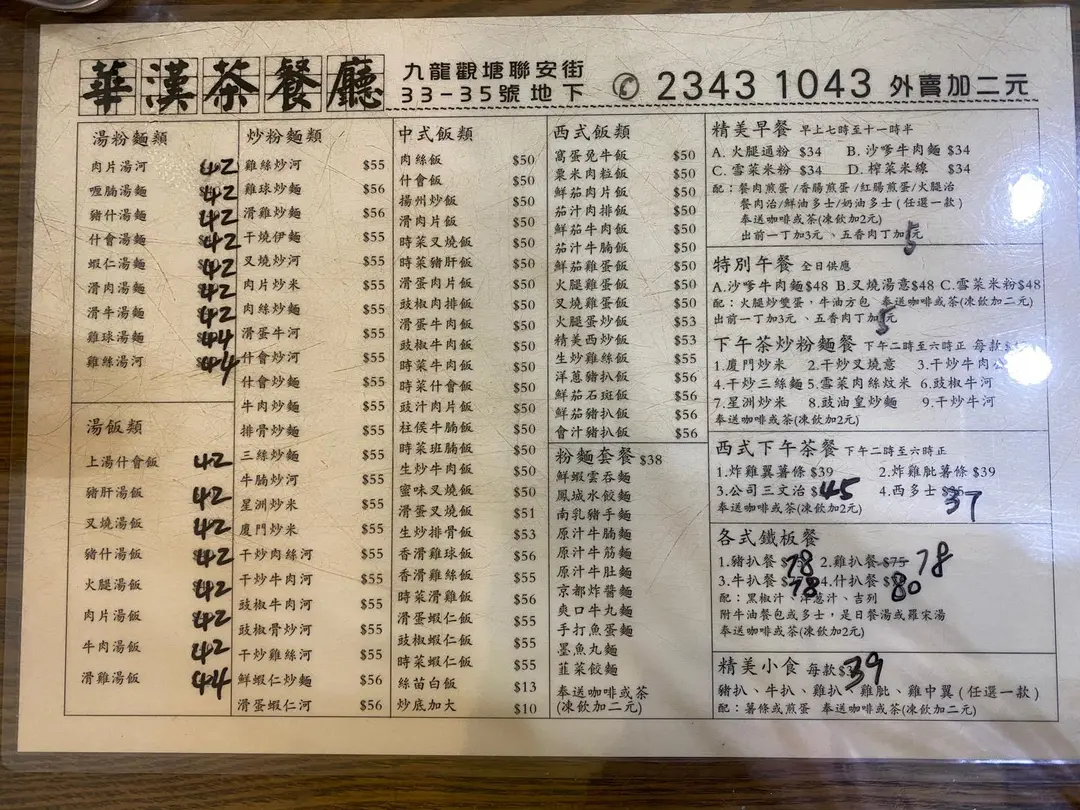 華漢茶餐廳
九龍觀塘聯安街
33-35號地下
2343 1043 外賣加二元
湯粉麵類
肉片湯河 42
喱腩湯麵 42
豬什湯麵 42
什會湯麵 42
蝦仁湯麵 42
滑肉湯麵 42
滑牛湯麵 42
雞球湯麵 44
雞絲湯河 44
湯飯類
上湯什會飯 42
豬肝湯飯 42
叉燒湯飯 42
豬什湯飯 42
火腿湯飯 42
肉片湯飯 42
牛肉湯飯 42
滑雞湯飯 44
炒粉麵類
雞絲炒河 $55
雞球炒麵 $56
滑雞炒麵 $56
干燒伊麵 $55
叉燒炒河 $55
肉片炒米 $55
肉絲炒麵 $55
滑蛋牛河 $55
什會炒河 $55
什會炒麵 $55
牛肉炒麵 $55
排骨炒麵 $55
三絲炒麵 $55
牛腩炒河 $55
星洲炒米 $55
廈門炒米 $55
干炒肉絲河 $55
干炒牛肉河 $55
豉椒牛肉河 $55
豉椒骨炒河 $55
干炒雞絲河 $55
鮮蝦仁炒麵 $56
滑蛋蝦仁河 $56
中式飯類
肉絲飯 $50
什會飯 $50
揚州炒飯 $50
滑肉片飯 $50
時菜叉燒飯 $50
時菜豬肝飯 $50
滑蛋肉片飯 $50
豉椒肉排飯 $50
滑蛋牛肉飯 $50
豉椒牛肉飯 $50
時菜牛肉飯 $50
時菜什會飯 $50
豉汁肉片飯 $50
柱侯牛腩飯 $50
時菜班腩飯 $50
生炒牛肉飯 $50
蜜味叉燒飯 $50
滑蛋叉燒飯 $51
生炒排骨飯 $53
香滑雞球飯 $56
香滑雞絲飯 $55
時菜滑雞飯 $56
滑蛋蝦仁飯 $55
豉椒蝦仁飯 $55
時菜蝦仁飯 $55
絲苗白飯 $13
炒底加大 $10
西式飯類
窩蛋免牛飯 $50
粟米肉粒飯 $50
鮮茄肉片飯 $50
茄汁肉排飯 $50
鮮茄牛肉飯 $50
茄汁牛腩飯 $50
鮮茄雞蛋飯 $50
火腿雞蛋飯 $50
叉燒雞蛋飯 $50
火腿蛋炒飯 $53
精美西炒飯 $53
生炒雞絲飯 $55
洋蔥豬扒飯 $56
鮮茄石斑飯 $56
鮮茄豬扒飯 $56
會汁豬扒飯 $56
粉麵套餐 $38
鮮蝦雲吞麵
鳳城水餃麵
南乳豬手麵
原汁牛腩麵
原汁牛筋麵
原汁牛肚麵
京都炸醬麵
爽口牛丸麵
手打魚蛋麵
墨魚丸麵
韮菜餃麵
奉送咖啡或茶
(凍飲加二元)
精美早餐 早上七時至十一時半
A. 火腿通粉 $34 B. 沙嗲牛肉麵 $34
C. 雪菜米粉 $34 D. 榨菜米線 $34
配：餐肉煎蛋/香腸煎蛋/紅腸煎蛋/火腿治
餐肉治/鮮油多士/奶油多士(任選一款)
奉送咖啡或茶(凍飲加2元)
出前一丁加3元、五香肉丁加5元
特別午餐 全日供應
A.沙嗲牛肉麵$48 B.叉燒湯意$48 C.雪菜米粉$48
配：火腿炒雙蛋，牛油方包 奉送咖啡或茶(凍飲加二元)
出前一丁加3元、五香肉丁加5元
下午茶炒粉麵餐 下午二時至六時正 每款$
1.廈門炒米 2.干炒叉燒意 3.干炒牛肉公
4.干炒三絲麵 5.雪菜肉絲炆米 6.豉椒牛河
7.星洲炒米 8.豉油皇炒麵 9.干炒牛河
奉送咖啡或茶(凍飲加2元)
西式下午茶餐 下午二時至六時正
1.炸雞翼薯條 $39 2.炸雞肶薯條 $39
3.公司三文治 $45 4.西多士 37
奉送咖啡或茶(凍飲加2元)
各式鐵板餐
1.豬扒餐 78 2.雞扒餐 $75 78
3.牛扒餐 78 4.什扒餐 80
配：黑椒汁、洋蔥汁、吉列
附牛油餐包或多士，是日餐湯或羅宋湯
奉送咖啡或茶(凍飲加2元)
精美小食 每款$39
豬扒、牛扒、雞扒、雞肶、雞中翼(任選一款)
配：薯條或煎蛋 奉送咖啡或茶(凍飲加二元)